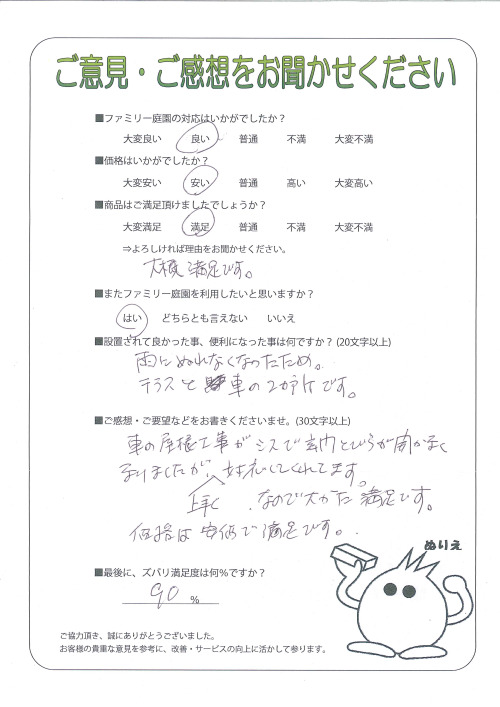 ご意見・ご感想をお聞かせください
■ファミリー庭園の対応はいかがでしたか？
大変良い 良い 普通 不満 大変不満
■価格はいかがでしたか？
大変安い 安い 普通 高い 大変高い
■商品はご満足頂けましたでしょうか？
大変満足 満足 普通 不満 大変不満
⇒よろしければ理由をお聞かせください。
大模 満足です。
■またファミリー庭園を利用したいと思いますか？
はい どちらとも言えない いいえ
■設置されて良かった事、便利になった事は何ですか？(20文字以上)
雨にぬれなくなったため。
テラスと 車の2か所です。
■ご感想・ご要望などをお書きくださいませ。(30文字以上)
車の屋根工事がミスで玄関とびらが開かなく
なりましたが、対応してくれてます。
上手く なので大かた満足です。
価格は安価で満足です。
ぬりえ
■最後に、ズバリ満足度は何%ですか？
90 %
ご協力頂き、誠にありがとうございました。
お客様の貴重な意見を参考に、改善・サービスの向上に活かして参ります。